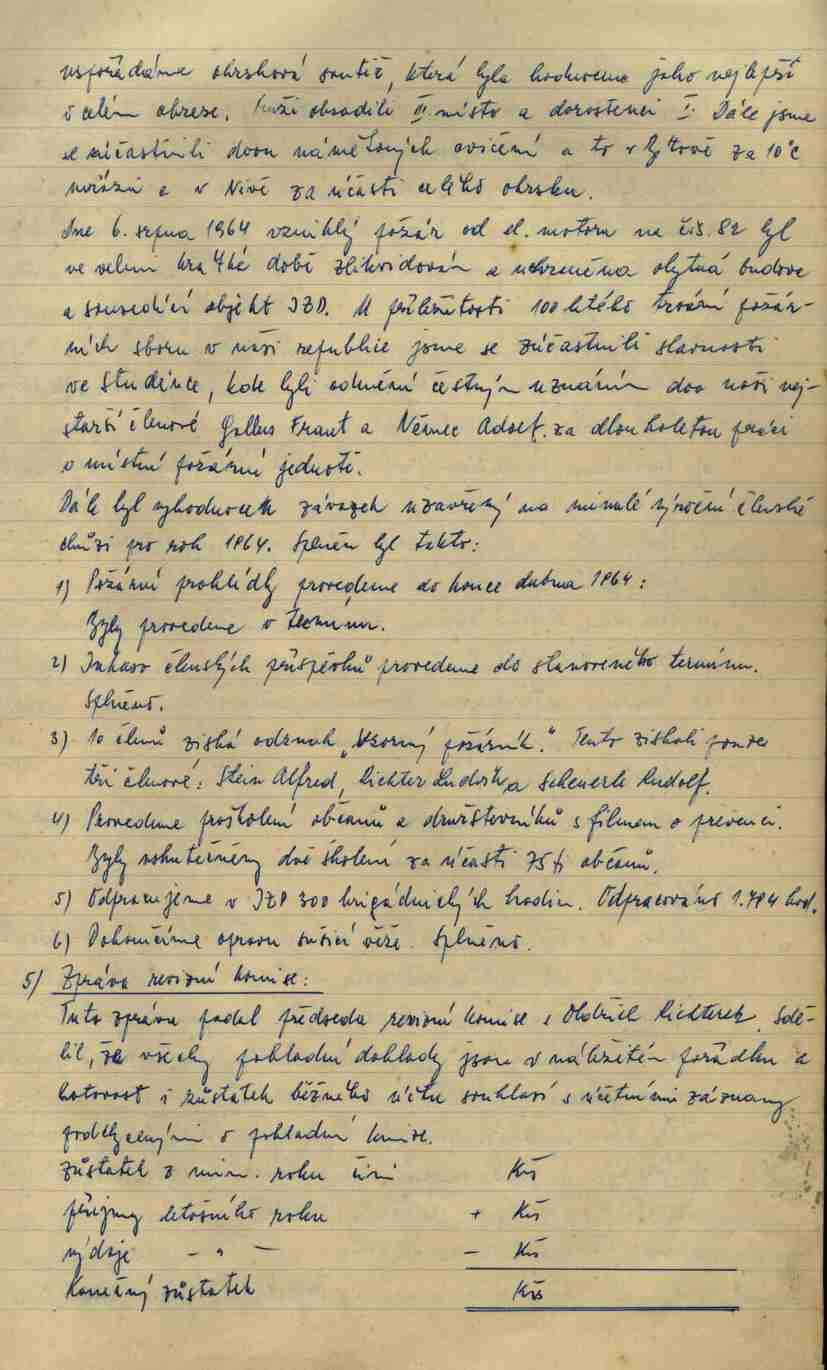 uspořádána okrsková soutěž, která byla hodnocena jako nejlepší
v celém okrese. Muži obsadili III. místo a dorostenci I. Dále jsme
se zúčastnili dvou námětových cvičení a to v Bítově za 10°C
mrazu a v Nivě za účasti celého okrsku.
Dne 6. srpna 1964 vzniklý požár od el. motoru na čís. 82 byl
ve velmi krátké době zlikvidován a uchráněna obytná budova
a sousedící objekt JZD. U příležitosti 100 letého trvání požár-
ních sborů v naší republice jsme se zúčastnili slavnosti
ve Studénce, kde byli odměněni čestným uznáním dva naši nej-
starší členové Gallus Frant a Němec Adolf. za dlouholetou práci
v místní požární jednotě.
Dále byl vyhodnocen závazek uzavřený na minulé výroční členské
chůzi pro rok 1964. Splněn byl takto:
1) Požární prohlídky provedeme do konce dubna 1964:
Byly provedene v termínu.
2) Inkaso členských příspěvků provedeme do stanoveného termínu.
Splněno.
3) 10 členů získá odznak „Vzorný požárník." Tento získali pouze
tři členové: Stein Alfred, Richter Ludvík a Scheuerle Rudolf.
4) Provedeme proškolení občanů a družstevníků s filmem o prevenci.
Byly uskutečněny dvě školení za účasti 75ti občanů.
5) Odpracujeme v JZD 300 brigádnických hodin. Odpracováno 1.784 hod.
6) Dokončíme opravu sušicí věže. Splněno.
5/ Zpráva revizní komise:
Tuto zprávu podal předseda revizní komise s. Oldřich Richterek. Sdě-
lil, že všechny pokladní doklady jsou v náležitém pořádku a
hotovost i zůstatek běžného účtu souhlasí s účetními záznamy
v pokladní knize.
Zůstatek z min. roku činí Kčs
příjmy letošního roku + Kčs
výdaje – „ – – Kčs
Konečný zůstatek Kčs